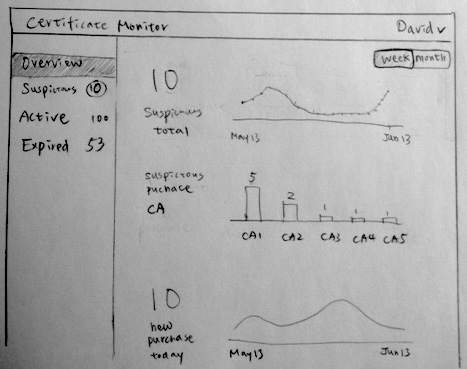 Certificate Monitor
David v
week month
Overview
Suspicious 10
Active 100
Expired 53
10
Suspicious
total
May13
Jun13
suspicious
puchace
CA
5 2 1 1 1
CA1 CA2 CA3 CA4 CA5
10
new
purchase
today
May13
Jun13